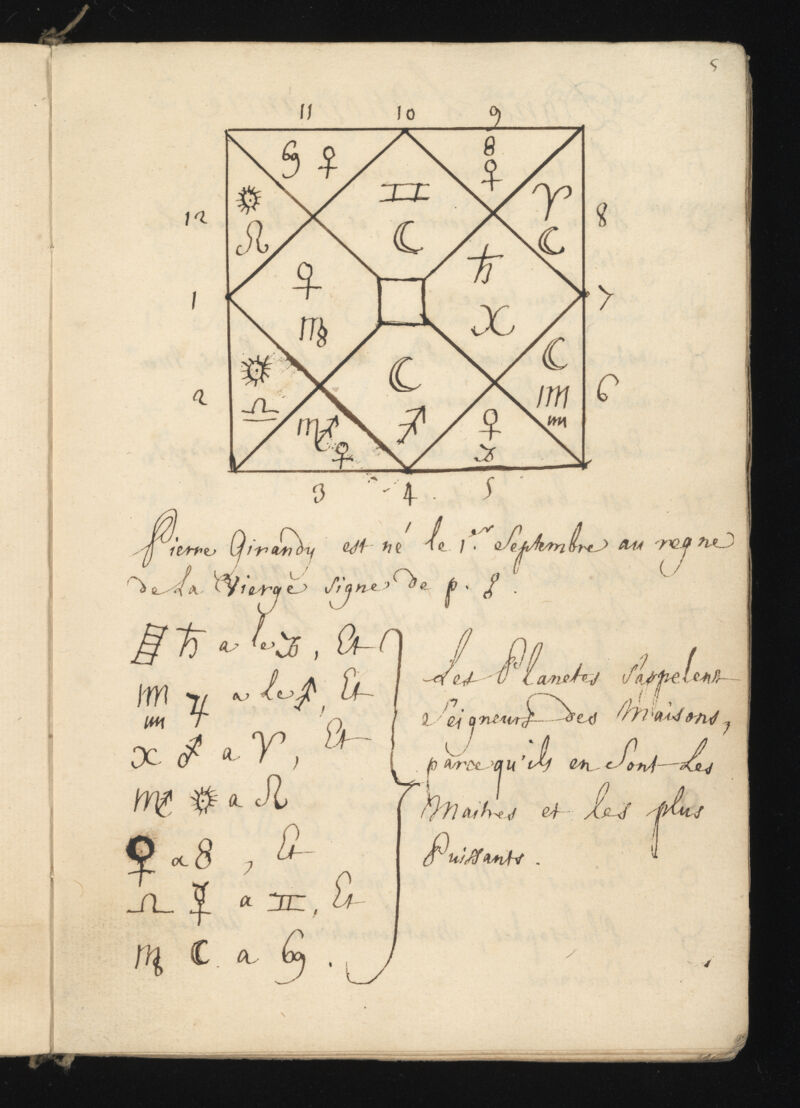 5
11 10 9
♋ ♀ ♊ ☾ ♉ ♀
12 ☉ ♌ ♈ ☾ 8
1 ♀ ♍ ♄ ♓ 7
2 ☉ ♎ ☾ ♐ ☾ ♒ 6
♏ ♀ ♀ ♑
3 4 5
Pierre Girandy est né le 1.er Septembre au regne
de La Vierge signe de p. 8.
♄ a le ♑, Et
♒ ♃ a le ♐, Et
♓ ♂ a ♈, Et
♏ ☉ a ♌
♀ a ♉, Et
♎ ☿ a ♊, Et
♍ ☾ a ♋.
Les Planetes s'appelent
Seigneurs des Maisons,
parcequ'ils en sont Les
Maitres et les plus
Puissants.